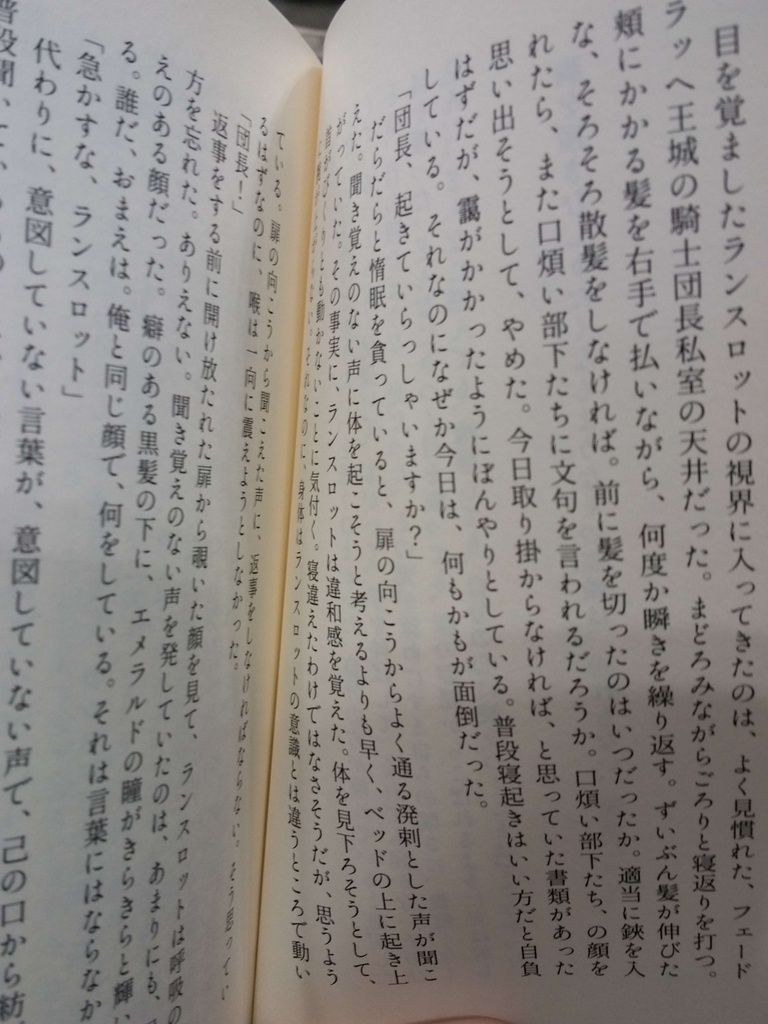 目を覚ましたランスロットの視界に入ってきたのは、よく見慣れた、フェード
ラッへ王城の騎士団長私室の天井だった。まどろみながらごろりと寝返りを打つ。
頬にかかる髪を右手で払いながら、何度か瞬きを繰り返す。ずいぶん髪が伸びた
な、そろそろ散髪をしなければ。前に髪を切ったのはいつだったか。適当に鋏を入
れたら、また口煩い部下たちに文句を言われるだろうか。口煩い部下たち、の顔を
思い出そうとして、やめた。今日取り掛からなければ、と思っていた書類があった
はずだが、靄がかかったようにぼんやりとしている。普段寝起きはいい方だと自負
している。それなのになぜか今日は、何もかもが面倒だった。
「団長、起きていらっしゃいますか?」
だらだらと惰眠を貪っていると、扉の向こうからよく通る溌剌とした声が聞こ
えた。聞き覚えのない声に体を起こそうと考えるよりも早く、ベッドの上に起き上
がっていた。その事実に、ランスロットは違和感を覚えた。体を見下ろそうとして、
首がぴくりとも動かないことに気付く。寝違えたわけではなさそうだが、思うよう
それなのに、身体はランスロットの意識とは違うところで動い
ている。扉の向こうから聞こえた声に、返事をしなければならない。そう思ってい
るはずなのに、喉は一向に震えようとしなかった。
「団長!」
返事をする前に開け放たれた扉から覗いた顔を見て、ランスロットは呼吸の
方を忘れた。ありえない。聞き覚えのない声を発していたのは、あまりにも、
えのある顔だった。癖のある黒髪の下に、エメラルドの瞳がきらきらと輝い
る。誰だ、おまえは。俺と同じ顔で、何をしている。それは言葉にはならなか
「急かすな、ランスロット」
代わりに、意図していない言葉が、意図していない声で、己の口から紡